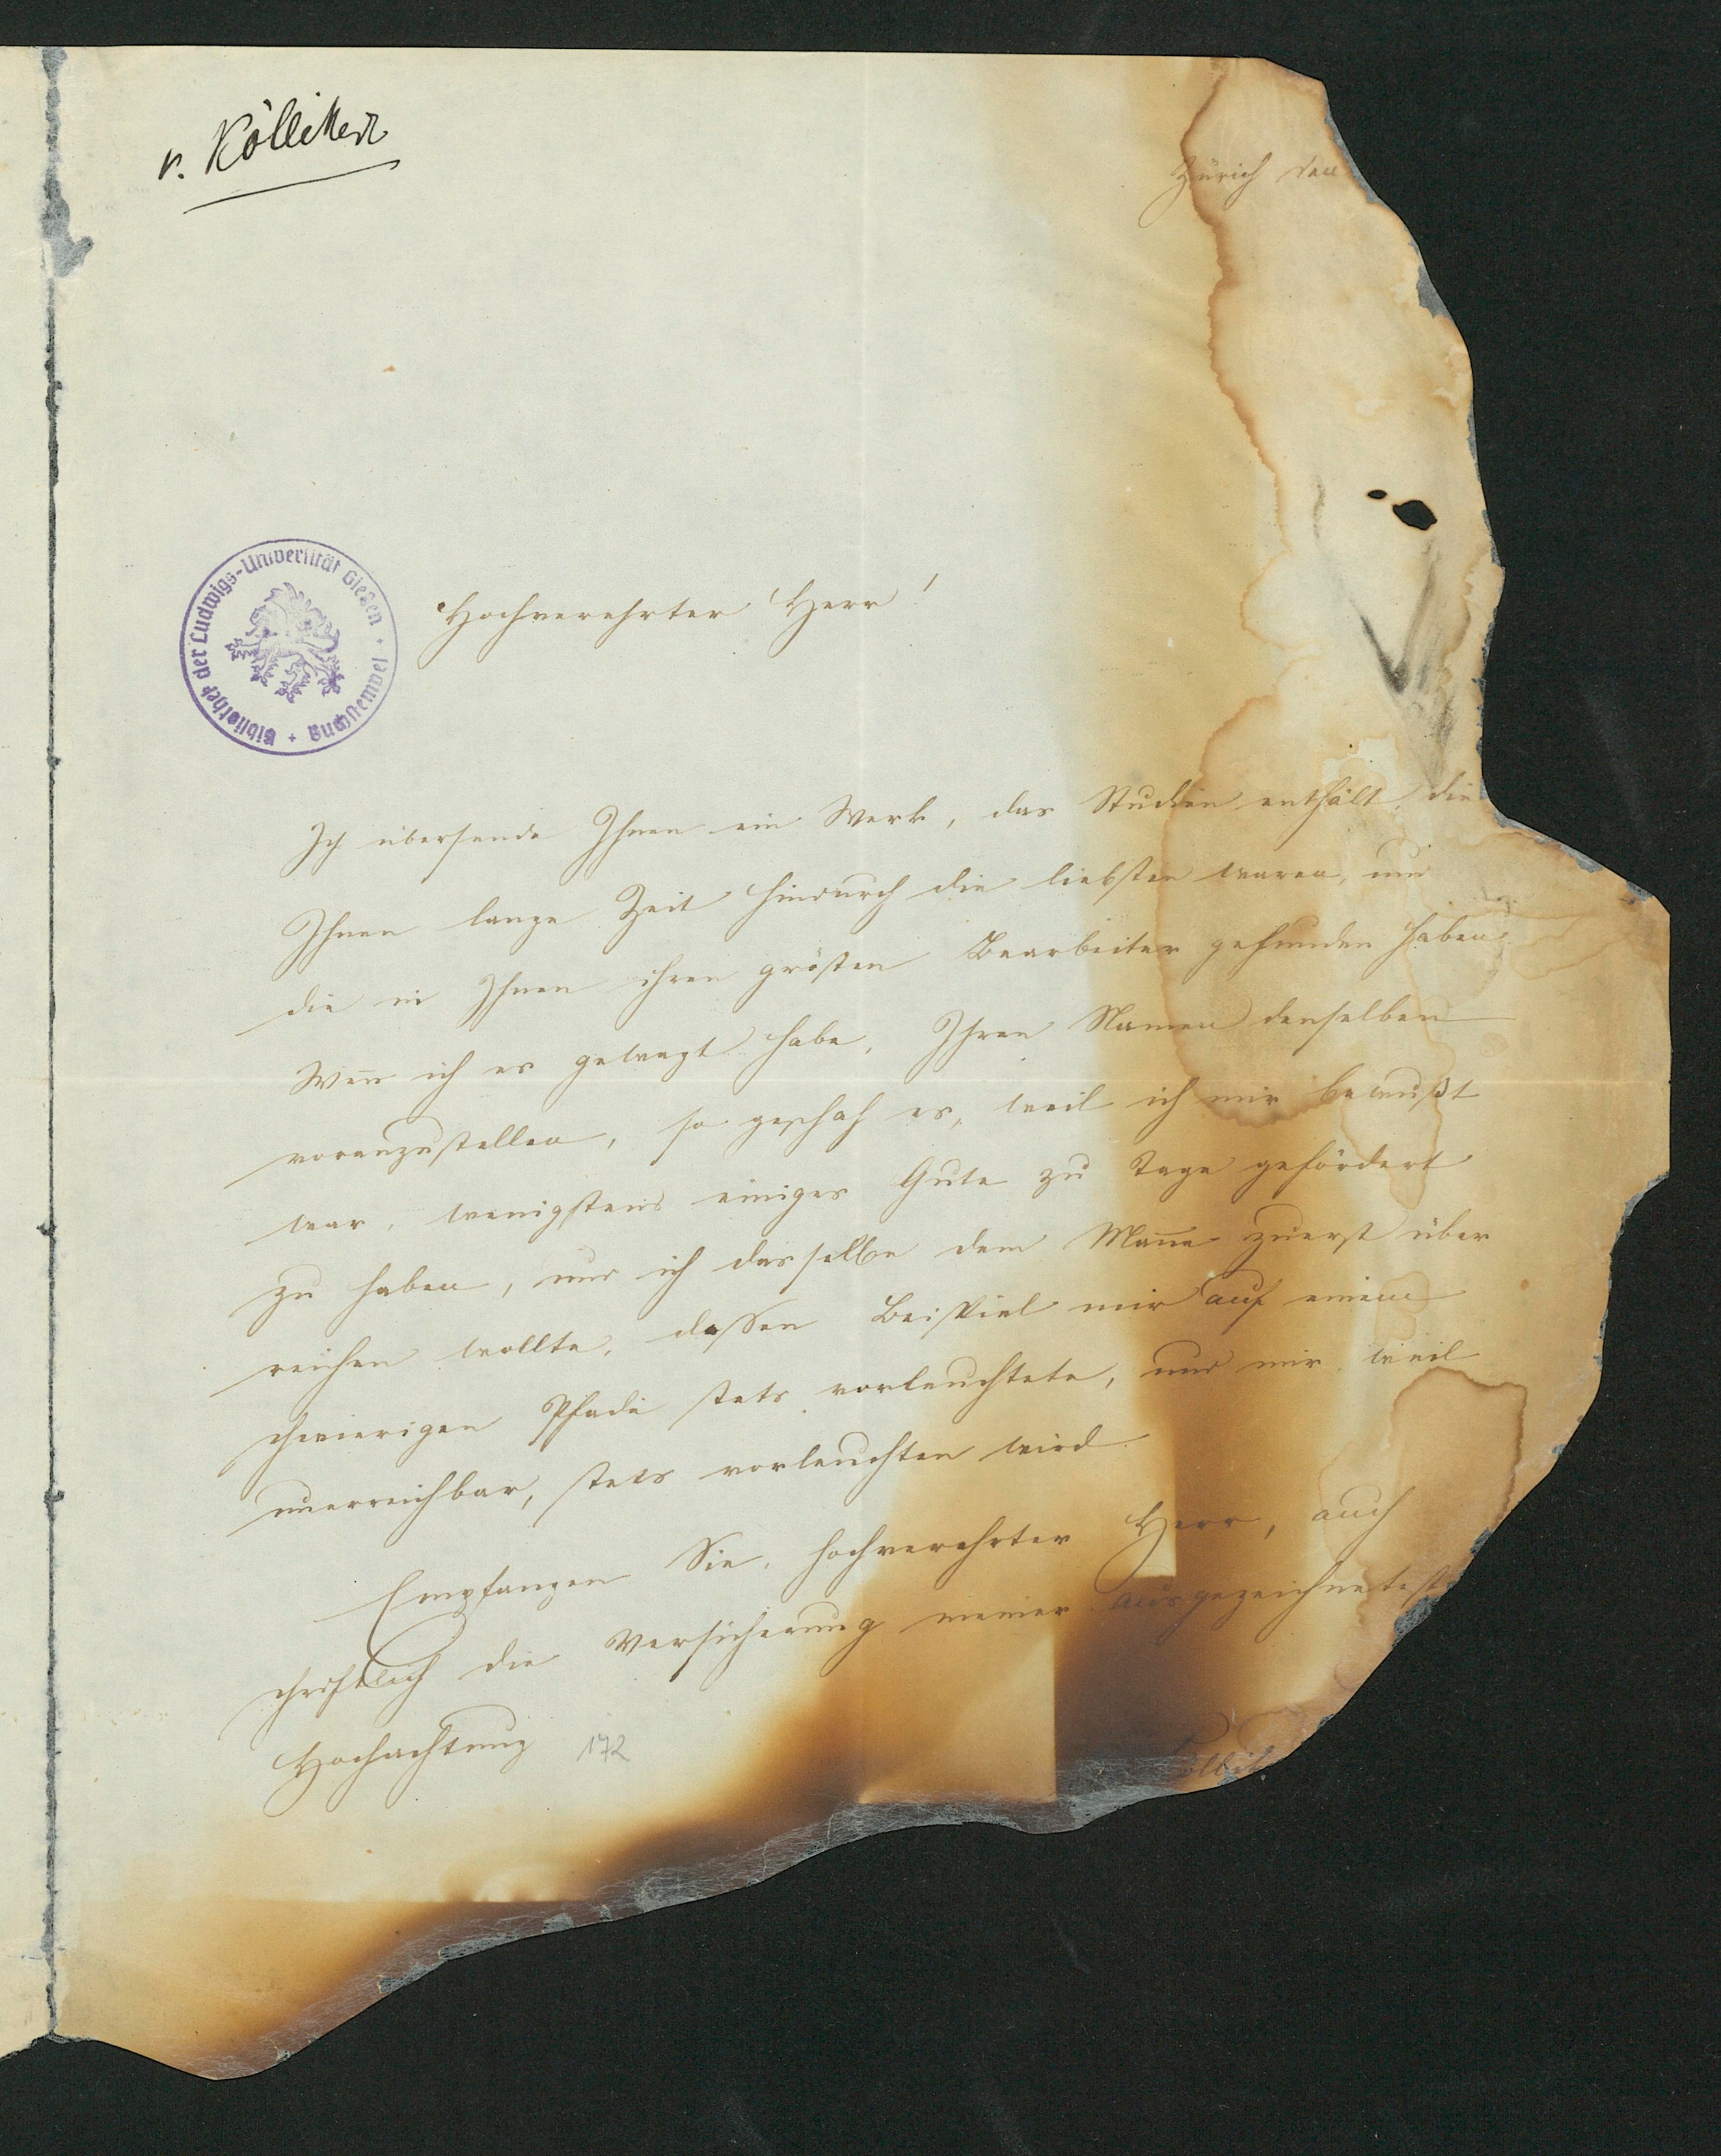 v. Kölliker
Zürich den
Bibliothek der Ludwigs-Universität Giesen + Buchstempel +
Hochverehrter Herr!
Ich übersende Ihnen ein Werk, das Studien enthält, die
Ihnen lange Zeit hindurch die liebsten waren, und
die in Ihnen ihren grösten Bearbeiter gefunden haben.
Weñ ich es gewagt habe, Ihren Namen denselben
voranzustellen, so geschah es, weil ich mir bewußt
war, wenigstens einiges Gute zu Tage gefördert
zu haben, und ich dasselbe dem Mañe zuerst über
reichen wollte, dessen Beispiel mir auf einem
schwierigen Pfade stets vorleuchtete, und mir, weil
unerreichbar, stets vorleuchten wird.
Empfangen Sie, hochverehrter Herr, auch
schriftlich die Versicherung meiner ausgezeichnetest
Hochachtung 172
Köllik